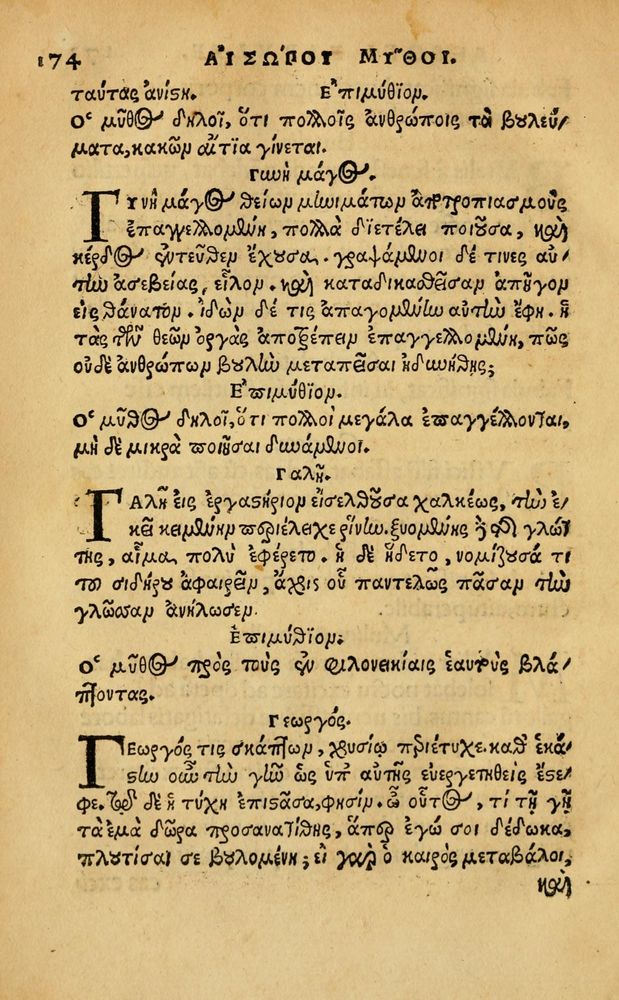 174 ΑἰΣΩ´ΠΟΥ ΜΥ͂ΘΟΙ.
ταύτας ἀνίϛη. Ἐπιμύθιον.
Ὁ μῦθος δηλοῖ, ὅτι πολλοῖς ἀνθρώποις τὰ βουλεύ/
ματα, κακῶν αἰτία γίνεται.
Γυνὴ μάγος.
Γυνὴ μάγος θείων μηνιμάτων ἀποτροπιασμοὺς
ἐπαγγελλομένη, πολλὰ διετέλει ποιοῦσα, καὶ
κέρδος ἐντεῦθεν ἔχουσα. γραψάμενοι δέ τινες αὐ/
τὴν ἀσεβείας, εἷλον. καὶ καταδικασθεῖσαν ἀπῆγον
εἰς θάνατον. ἰδὼν δέ τις ἀπαγομένην αὐτὴν ἔφη. ἡ
τὰς τῶν θεῶν ὀργὰς ἀποτρέπειν ἐπαγγελλομένη, πῶς
οὐδὲ ἀνθρώπων βουλὴν μεταπεῖσαι ἠδυνήθης;
Ἐπιμύθιον.
Ὁ μῦθος δηλοῖ, ὅτι πολλοὶ μεγάλα ἐπαγγέλλονται,
μὴ δὲ μικρὰ ποιῆσαι δυνάμενοι.
Γαλῆ.
Γαλῆ εἰς ἐργαϛήριον εἰσελθοῦσα χαλκέως, τὴν ἐ/
κεῖ κειμένην περιέλειχε ῥίνην. ξυομένης δὲ τῆς γλώτ
της, αἷμα πολὺ ἐφέρετο. ἡ δὲ ἥδετο, νομίζουσά τι
τοῦ σιδήρου ἀφαιρεῖν, ἄχρις οὗ παντελῶς πᾶσαν τὴν
γλῶσσαν ἀνήλωσεν.
Ἐπιμύθιον.
Ὁ μῦθος πρὸς τοὺς ἐν φιλονεικίαις ἑαυτοὺς βλά/
πτοντας.
Γεωργός.
Γεωργός τις σκάπτων, χρυσίῳ περιέτυχε. καθ' ἑκά/
ϛην οὖν τὴν γῆν ὡς ὑπ' αὐτῆς εὐεργετηθεὶς ἔϛε/
φε. τῷ δὲ ἡ τύχη ἐπιϛᾶσα, φησίν. ὦ οὗτος, τί τῇ γῇ
τὰ ἐμὰ δῶρα προσανατίθης, ἅπερ ἐγώ σοι δέδωκα,
πλουτίσαι σε βουλομένη; εἰ γὰρ ὁ καιρὸς μεταβάλοι,
καὶ